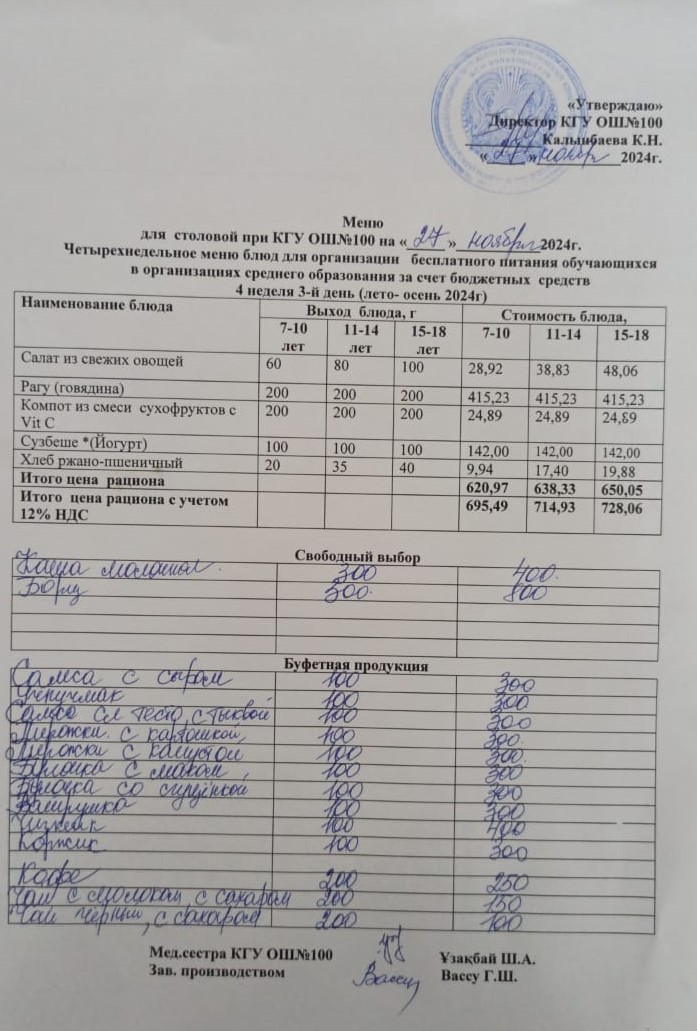 «Утверждаю»
Директор КГУ ОШ№100
Калынбаева К.Н.
« 27 » ноября 2024г.
Меню
для столовой при КГУ ОШ№100 на « 27 » ноября 2024г.
Четырехнедельное меню блюд для организации бесплатного питания обучающихся
в организациях среднего образования за счет бюджетных средств
4 неделя 3-й день (лето- осень 2024г)
Наименование блюда Выход блюда, г Стоимость блюда,
7-10 лет 11-14 лет 15-18 лет 7-10 11-14 15-18
Салат из свежих овощей 60 80 100 28,92 38,83 48,06
Рагу (говядина) 200 200 200 415,23 415,23 415,23
Компот из смеси сухофруктов с 200 200 200 24,89 24,89 24,89
Vit C
Сузбеше *(Йогурт) 100 100 100 142,00 142,00 142,00
Хлеб ржано-пшеничный 20 35 40 9,94 17,40 19,88
Итого цена рациона 620,97 638,33 650,05
Итого цена рациона с учетом 695,49 714,93 728,06
12% НДС
Свободный выбор
Каша молочная. 300 400.
Борщ 300. 800
Буфетная продукция
Самса с сыром 100 300
Учпучмак 100 300
Самса сл тесто, с тыквой 100 300
Пирожки. с картошкой, 100 300.
Пирожки с капустой 100 300.
Булочка с маком, 100 300
Булочка со сгущёнкой 100 300
Ватрушка 100 300
100 400
Коржик 100 300
Кофе 200 250
Чай с молоком, с сахаром 200 150
Чай чёрный, с сахаром 200 100
Мед.сестра КГУ ОШ№100 Ұзақбай Ш.А.
Зав. производством Вассу Вассу Г.Ш.